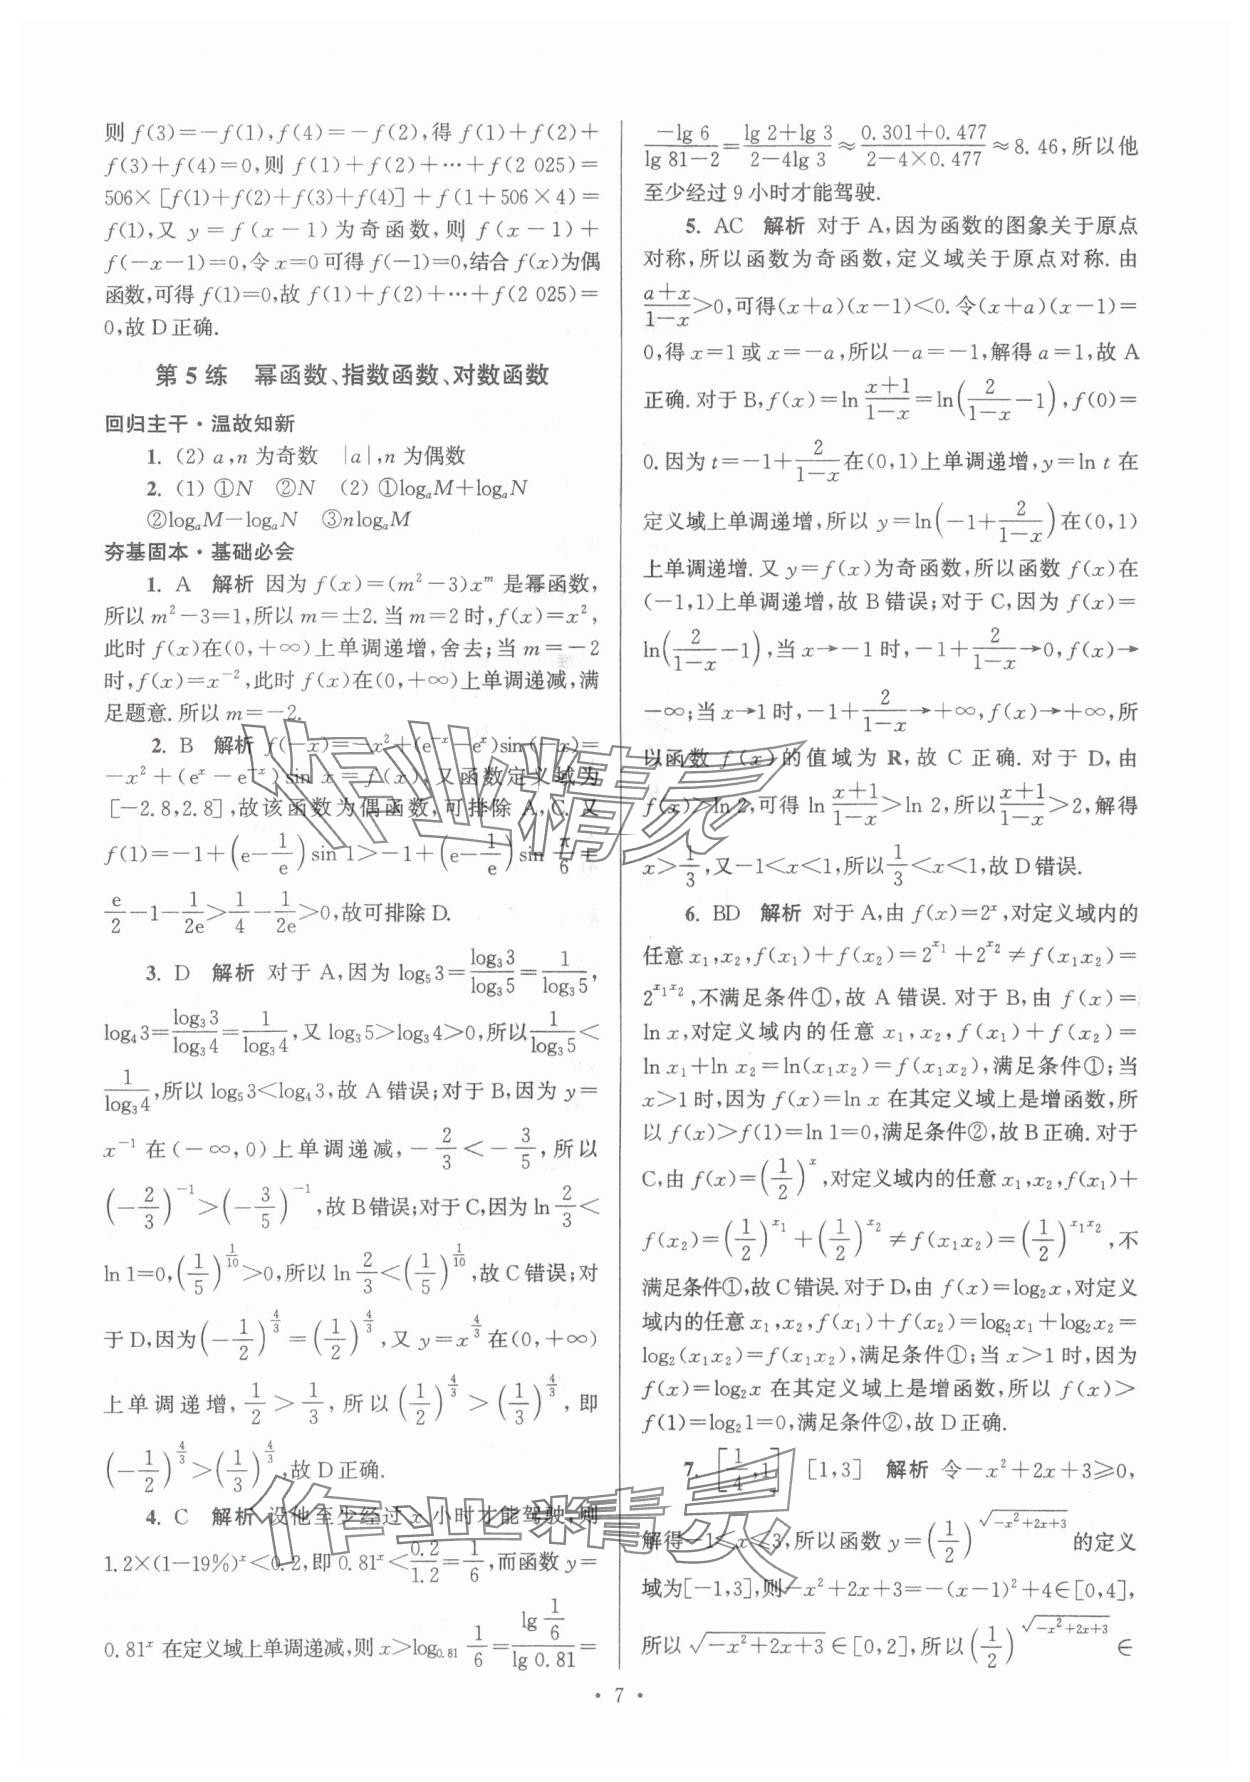 则 f(3)=-f(1),f(4)=-f(2),得 f(1)+f(2)+
f(3)+f(4)=0,则 f(1)+f(2)+…+f(2 025)=
506×[f(1)+f(2)+f(3)+f(4)]+f(1+506×4)=
f(1),又 y=f(x-1)为奇函数,则 f(x-1)+
f(-x-1)=0,令 x=0 可得 f(-1)=0,结合 f(x)为偶
函数,可得 f(1)=0,故 f(1)+f(2)+…+f(2 025)=
0,故 D 正确.
第 5 练 幂函数、指数函数、对数函数
回归主干·温故知新
1. (2) a,n 为奇数 |a|,n 为偶数
2. (1) ①N ②N (2) ①logₐM+logₐN
②logₐM-logₐN ③nlogₐM
夯基固本·基础必会
1. A 解析 因为 f(x)=(m²-3)xᵐ 是幂函数,
所以 m²-3=1,所以 m=±2. 当 m=2 时,f(x)=x²,
此时 f(x)在(0,+∞)上单调递增,舍去;当 m=-2
时,f(x)=x⁻²,此时 f(x)在(0,+∞)上单调递减,满
足题意. 所以 m=-2.
2. B 解析 f(-x)=-x²+(e⁻ˣ-eˣ)sin(-x)=
-x²+(eˣ-e⁻ˣ)sin x=f(x),又函数定义域为
[-2.8,2.8],故该函数为偶函数,可排除 A,C. 又
f(1)=-1+(e-1/e)sin 1>-1+(e-1/e)sin π/6=
e/2-1-1/2e>1/4-1/2e>0,故可排除 D.
3. D 解析 对于 A,因为 log₅3=log₃3/log₃5=1/log₃5,
log₄3=log₃3/log₃4=1/log₃4,又 log₃5>log₃4>0,所以 1/log₃5<
1/log₃4,所以 log₅3<log₄3,故 A 错误;对于 B,因为 y=
x⁻¹ 在(-∞,0)上单调递减,-2/3<-3/5,所以
(-2/3)⁻¹>(-3/5)⁻¹,故 B 错误;对于 C,因为 ln 2/3<
ln 1=0,(1/5)^(1/10)>0,所以 ln 2/3<(1/5)^(1/10),故 C 错误;对
于 D,因为(-1/2)^(4/3)=(1/2)^(4/3),又 y=x^(4/3) 在(0,+∞)
上单调递增,1/2>1/3,所以(1/2)^(4/3)>(1/3)^(4/3),即
(-1/2)^(4/3)>(1/3)^(4/3),故 D 正确.
4. C 解析 设他至少经过 x 小时才能驾驶,则
1.2×(1-19%)ˣ<0.2,即 0.81ˣ<0.2/1.2=1/6,而函数 y=
0.81ˣ 在定义域上单调递减,则 x>log₀.₈₁ 1/6=(lg 1/6)/(lg 0.81)=
-lg 6/(lg 81-2)=(lg 2+lg 3)/(2-4lg 3)≈(0.301+0.477)/(2-4×0.477)≈8.46,所以他
至少经过 9 小时才能驾驶.
5. AC 解析 对于 A,因为函数的图象关于原点
对称,所以函数为奇函数,定义域关于原点对称. 由
(a+x)/(1-x)>0,可得(x+a)(x-1)<0. 令(x+a)(x-1)=
0,得 x=1 或 x=-a,所以-a=-1,解得 a=1,故 A
正确. 对于 B,f(x)=ln (x+1)/(1-x)=ln(2/(1-x)-1),f(0)=
0. 因为 t=-1+2/(1-x)在(0,1)上单调递增,y=ln t 在
定义域上单调递增,所以 y=ln(-1+2/(1-x))在(0,1)
上单调递增. 又 y=f(x)为奇函数,所以函数 f(x)在
(-1,1)上单调递增,故 B 错误;对于 C,因为 f(x)=
ln(2/(1-x)-1),当 x→-1 时,-1+2/(1-x)→0,f(x)→
-∞;当 x→1 时,-1+2/(1-x)→+∞,f(x)→+∞,所
以函数 f(x)的值域为 R,故 C 正确. 对于 D,由
f(x)>ln 2,可得 ln (x+1)/(1-x)>ln 2,所以(x+1)/(1-x)>2,解得
x>1/3,又-1<x<1,所以1/3<x<1,故 D 错误.
6. BD 解析 对于 A,由 f(x)=2ˣ,对定义域内的
任意 x₁,x₂,f(x₁)+f(x₂)=2^(x₁)+2^(x₂)≠f(x₁x₂)=
2^(x₁x₂),不满足条件①,故 A 错误. 对于 B,由 f(x)=
ln x,对定义域内的任意 x₁,x₂,f(x₁)+f(x₂)=
ln x₁+ln x₂=ln(x₁x₂)=f(x₁x₂),满足条件①;当
x>1 时,因为 f(x)=ln x 在其定义域上是增函数,所
以 f(x)>f(1)=ln 1=0,满足条件②,故 B 正确. 对于
C,由 f(x)=(1/2)ˣ,对定义域内的任意 x₁,x₂,f(x₁)+
f(x₂)=(1/2)^(x₁)+(1/2)^(x₂)≠f(x₁x₂)=(1/2)^(x₁x₂),不
满足条件①,故 C 错误. 对于 D,由 f(x)=log₂x,对定义
域内的任意 x₁,x₂,f(x₁)+f(x₂)=log₂x₁+log₂x₂=
log₂(x₁x₂)=f(x₁x₂),满足条件①;当 x>1 时,因为
f(x)=log₂x 在其定义域上是增函数,所以 f(x)>
f(1)=log₂1=0,满足条件②,故 D 正确.
7. [1/4,1] [1,3] 解析 令-x²+2x+3≥0,
解得-1≤x≤3,所以函数 y=(1/2)^√(-x²+2x+3) 的定义
域为[-1,3],则-x²+2x+3=-(x-1)²+4∈[0,4],
所以 √(-x²+2x+3)∈[0,2],所以(1/2)^√(-x²+2x+3)∈
·7·
作业精灵
作业精灵